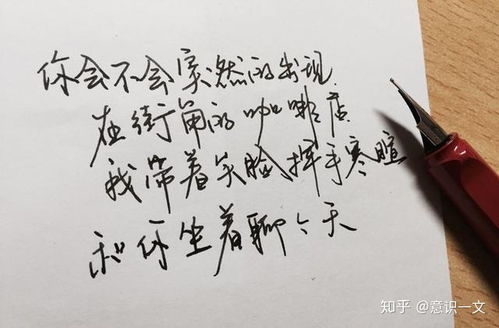 你会不会突然的出现
在街角的咖啡店
我带着笑脸挥手寒暄
和你坐着聊聊天
知乎 @意识一文